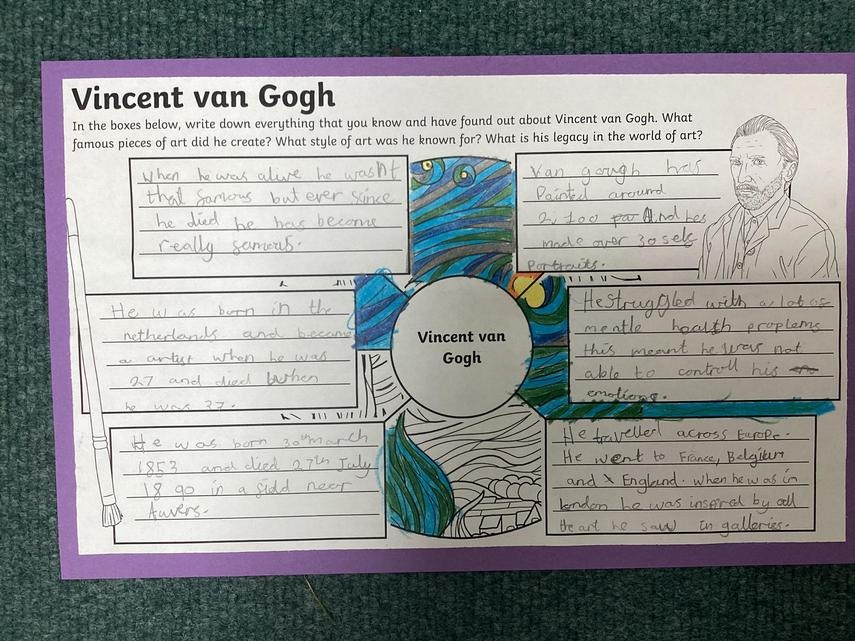 Vincent van Gogh
In the boxes below, write down everything that you know and have found out about Vincent van Gogh. What
famous pieces of art did he create? What style of art was he known for? What is his legacy in the world of art?
When he was alive he wasn't
that famous but ever since
he died he has become
really famous.
Van gough has
Painted around
2,100 And hes
made over 30 self
Portraits.
He was born in the
netherlands and became
a artist when he was
27 and died when
he was 37.
Vincent van
Gogh
He struggled with a lot of
mentle health proplems
this meant he was not
able to controll his
emotions.
He was born 30th march
1853 and died 27th July
18 90 in a fidd near
Auvers.
He travelled across Europe.
He went to France, Belgium
and England. when he was in
london he was inspired by all
the art he saw in galleries.